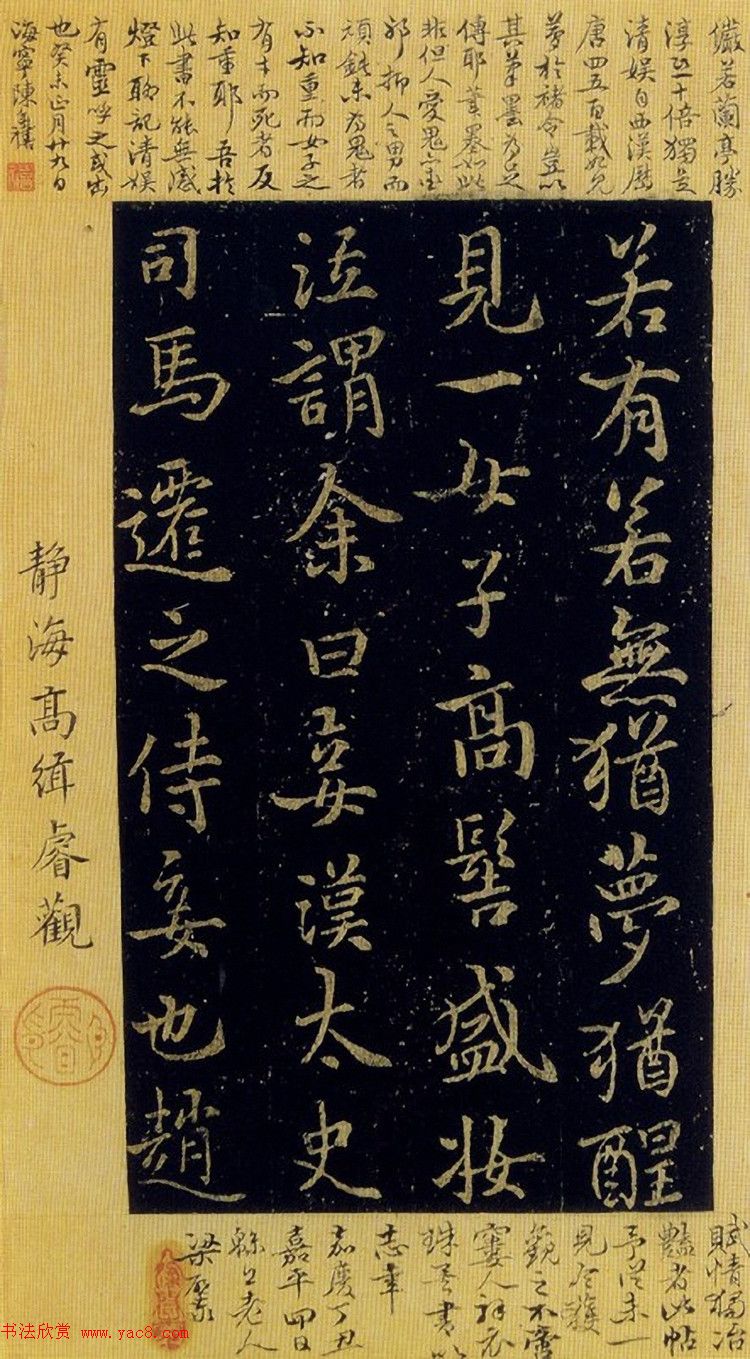 儼若蘭亭勝
十倍獨
清娛自西漢歷
唐四五百載
夢於褚令豈以
其筆墨為足
傳耶筆墨如此
非但人愛鬼亦
抑人之男而
頑鈍未為鬼者
不知重而女子之
有才而死者反
知重耶吾於
此書不能無感
燈下聊記清娛
有靈呼之或出
也癸未正月廿九日
海寧陳奕禧
若有若無猶夢猶醒
見一女子高髻盛妝
泣謂余曰妾漢太史
司馬遷之侍妾也趙
靜海高緝睿觀
賦情獨冶
豔者此帖
予從未一
見今獲
觀之不啻
窶人
珠書以
志幸
嘉慶丁丑
嘉平四日
山老人
梁
书法欣赏 www.yac8.com